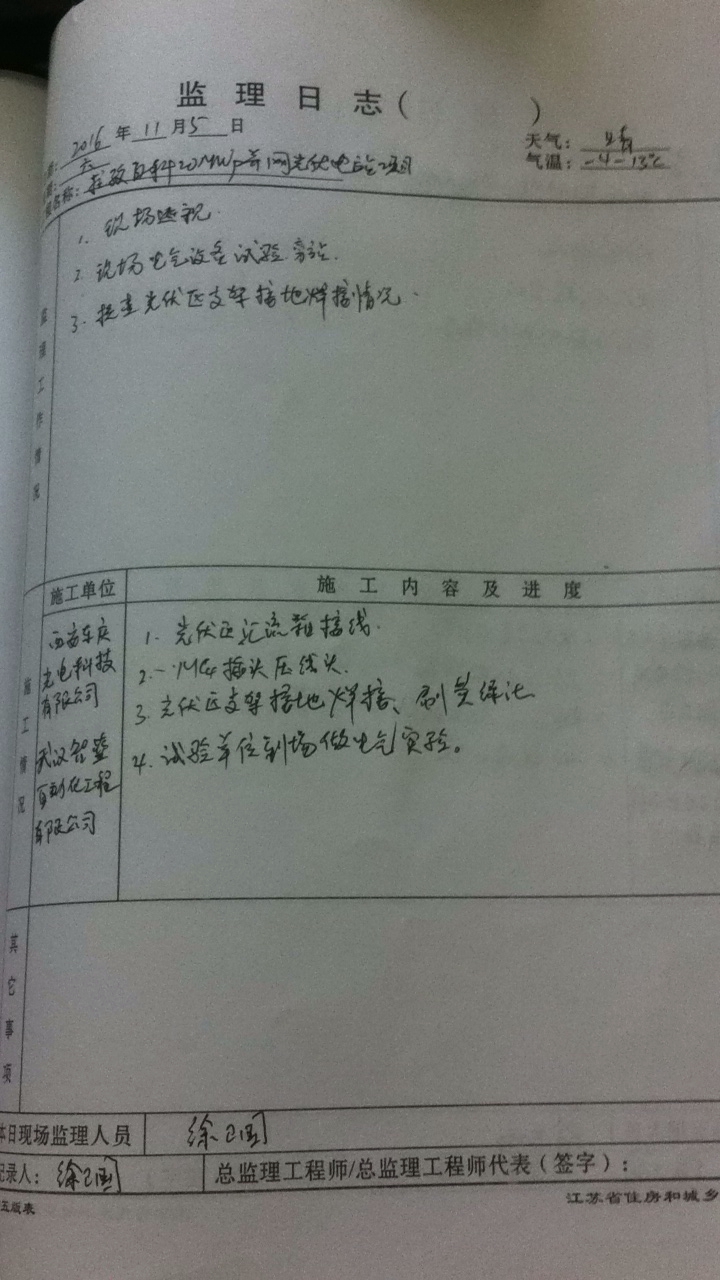 监理日志（ ）
2016年11月5日 天气：晴
期：六 气温：-4-13℃
名称： 20MWp并网光伏电站项目
监理工作情况
1. 现场巡视.
2 现场电气设备试验旁站.
3. 检查光伏区支架接地焊接情况.
施工情况
施工单位 施工内容及进度
西安 光电科技有限公司
武汉智 自动化工程有限公司
1. 光伏区汇流箱接线.
2. MC4插头压线头.
3 光伏区支架接地焊接、刷
4. 试验单位到场做电气实验。
其它事项
本日现场监理人员 徐卫国
记录人：徐卫国 总监理工程师/总监理工程师代表（签字）：
五版表 江苏省住房和城乡